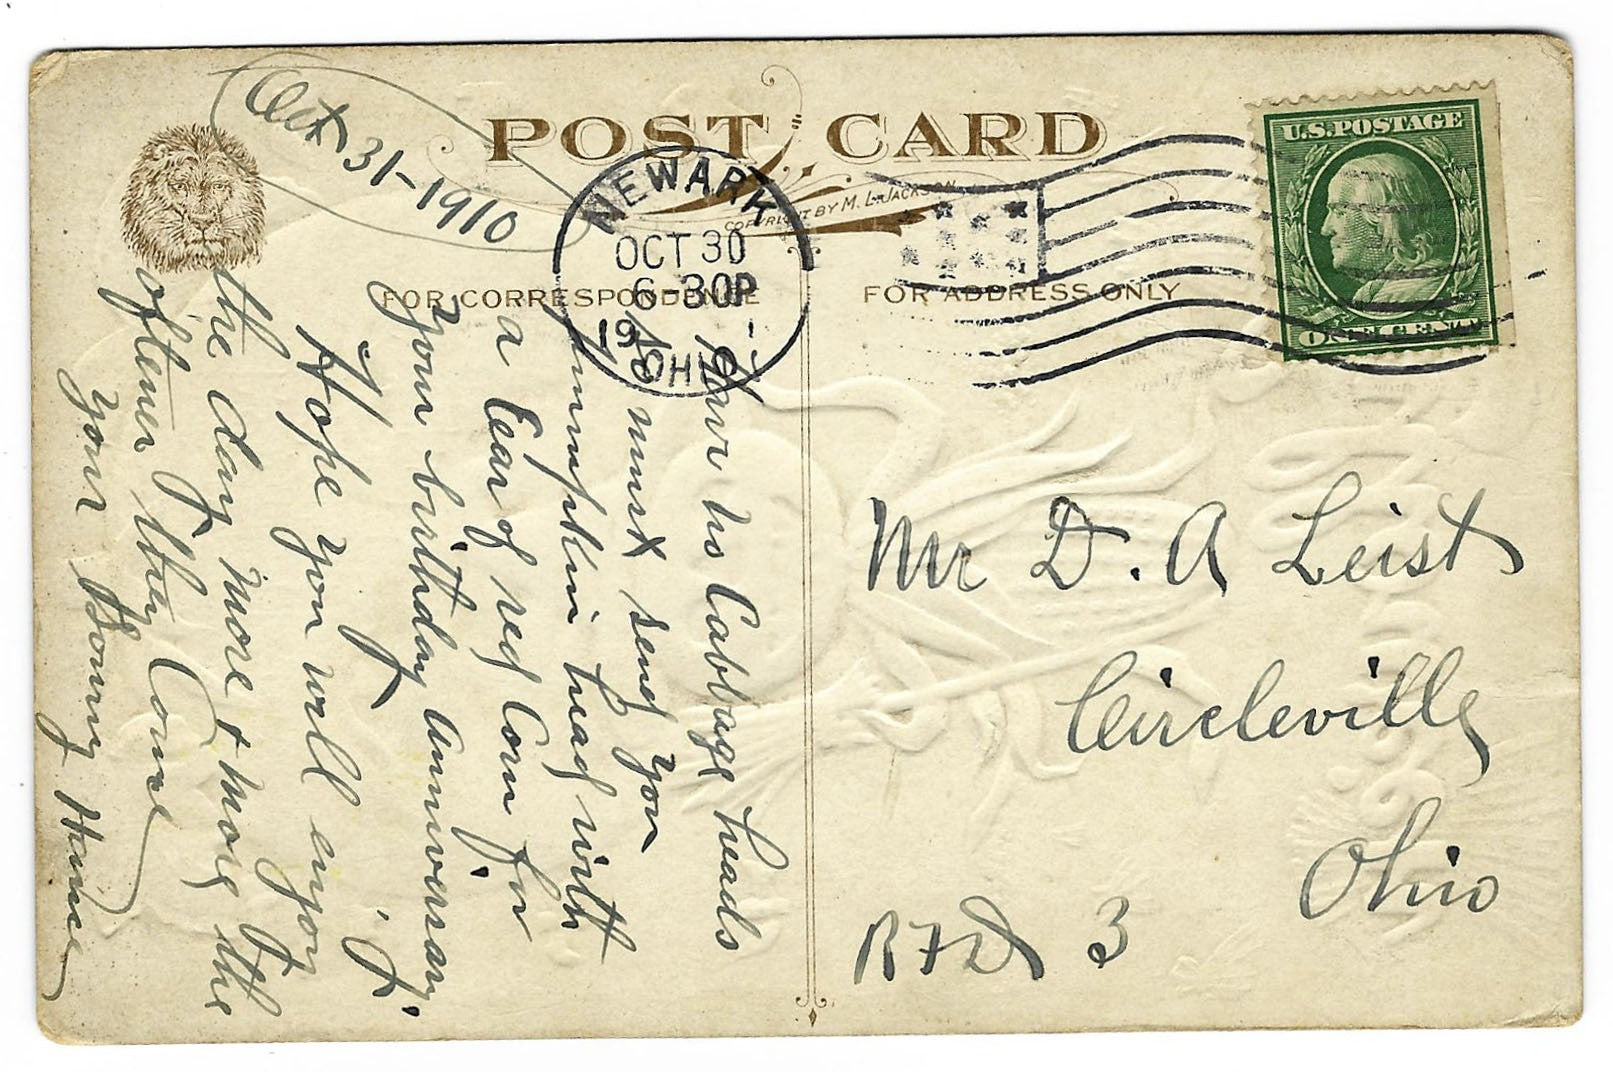 Oct 31-1910
POST CARD
COPYRIGHT BY M. L. JACKSON
NEWARK
OCT 30
6-30P
191
OHIO
U.S.POSTAGE
ONE CENT
FOR CORRESPONDENCE
FOR ADDRESS ONLY
Have no Cabbage heads
So must send you
pumpkin head with
a Ear of red Corn for
your birthday Anniversary.
Hope you will enjoy it
the day more & more the
oftener they Come
your
Mr D. A Leist
Circleville
Ohio
RFD 3